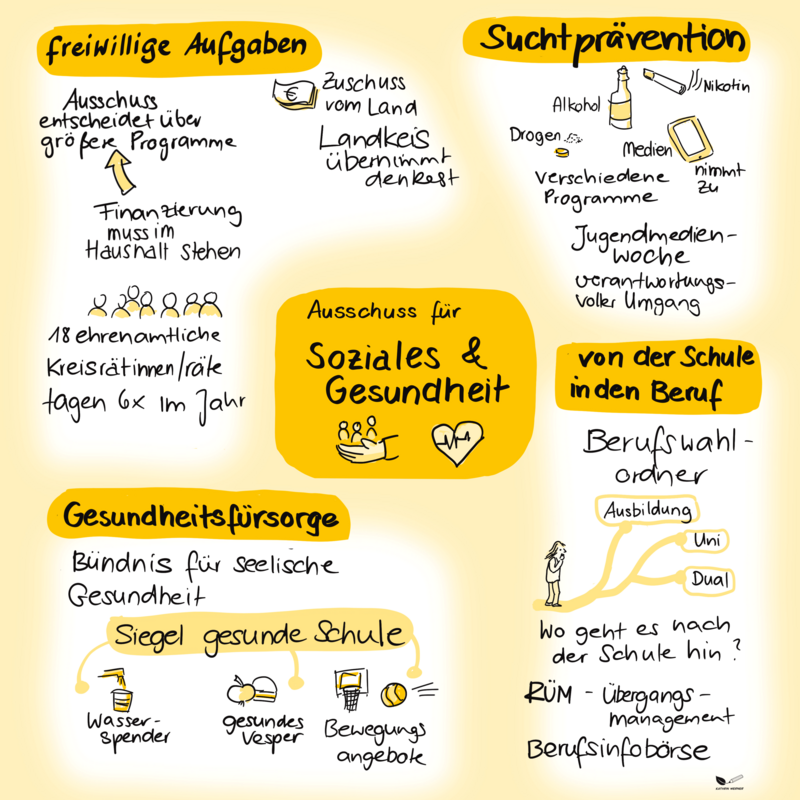 freiwillige Aufgaben
Ausschuss
entscheidet über
größere Programme
Finanzierung
muss im
Haushalt stehen
€
Zuschuss
vom Land
Landkeis
übernimmt
den Rest
18 ehrenamtliche
Kreisrätinnen/räte
tagen 6x im Jahr
Suchtprävention
Alkohol
Nikotin
Drogen
Medien
nimmt
zu
verschiedene
Programme
Jugendmedien-
woche
verantwortungs-
voller Umgang
Ausschuss für
Soziales &
Gesundheit
von der Schule
in den Beruf
Berufswahl-
ordner
Ausbildung
Uni
Dual
Wo geht es nach
der Schule hin?
RÜM - Übergangs-
management
Berufsinfobörse
Gesundheitsfürsorge
Bündnis für seelische
Gesundheit
Siegel gesunde Schule
Wasser-
spender
gesundes
Vesper
Bewegungs
angebote